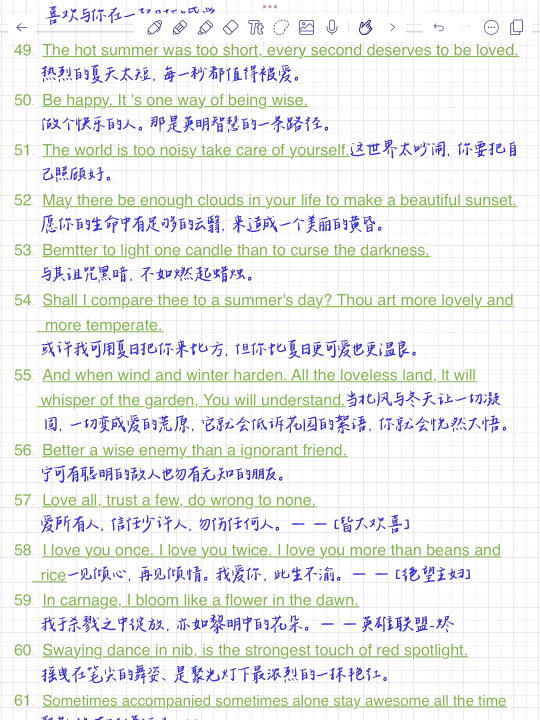 喜欢与你在一
49 The hot summer was too short, every second deserves to be loved.
热烈的夏天太短, 每一秒都值得被爱。
50 Be happy. It 's one way of being wise.
做个快乐的人。那是英明智慧的一条路径。
51 The world is too noisy take care of yourself.这世界太吵闹, 你要把自
己照顾好。
52 May there be enough clouds in your life to make a beautiful sunset.
愿你的生命中有足够多的云翳, 来造成一个美丽的黄昏。
53 Bemtter to light one candle than to curse the darkness.
与其诅咒黑暗, 不如燃起蜡烛。
54 Shall I compare thee to a summer's day? Thou art more lovely and
more temperate.
或许我可用夏日把你来比方, 但你比夏日更可爱也更温良。
55 And when wind and winter harden. All the loveless land, It will
whisper of the garden, You will understand.当北风与冬天让一切凝
固, 一切变成爱的荒原, 它就会低诉花园的絮语, 你就会恍然大悟。
56 Better a wise enemy than a ignorant friend.
宁可有聪明的敌人也勿有无知的朋友。
57 Love all, trust a few, do wrong to none.
爱所有人, 信任少许人, 勿伤任何人。— — [皆大欢喜]
58 I love you once. I love you twice. I love you more than beans and
rice一见倾心, 再见倾情。我爱你, 此生不渝。— — [绝望主妇]
59 In carnage, I bloom like a flower in the dawn.
我于杀戮之中绽放, 亦如黎明中的花朵。— — 英雄联盟-烬
60 Swaying dance in nib, is the strongest touch of red spotlight.
摇曳在笔尖的舞姿、是聚光灯下最浓烈的一抹艳红。
61 Sometimes accompanied sometimes alone stay awesome all the time